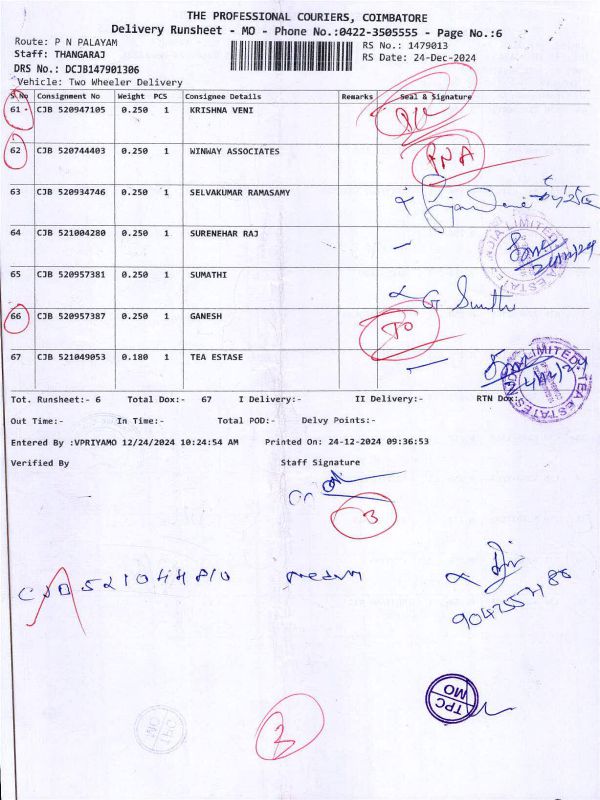 THE PROFESSIONAL COURIERS, COIMBATORE
Delivery Runsheet - MO - Phone No.:0422-3505555 - Page No.:6
Route: P N PALAYAM
RS No.: 1479013
Staff: THANGARAJ
RS Date: 24-Dec-2024
DRS No.: DCJB147901306
Vehicle: Two Wheeler Delivery
S No Consignment No Weight PCS Consignee Details Remarks Seal & Signature
61 CJB 520947105 0.250 1 KRISHNA VENI
62 CJB 520744403 0.250 1 WINWAY ASSOCIATES PNA
63 CJB 520934746 0.250 1 SELVAKUMAR RAMASAMY
64 CJB 521004280 0.250 1 SURENEHAR RAJ
65 CJB 520957381 0.250 1 SUMATHI
66 CJB 520957387 0.250 1 GANESH
67 CJB 521049053 0.180 1 TEA ESTASE
Tot. Runsheet:- 6 Total Dox:- 67 I Delivery:- II Delivery:- RTN Dox:-
Out Time:- In Time:- Total POD:- Delvy Points:-
Entered By :VPRIYAMO 12/24/2024 10:24:54 AM Printed On: 24-12-2024 09:36:53
Verified By Staff Signature
3
TPC
MO
3